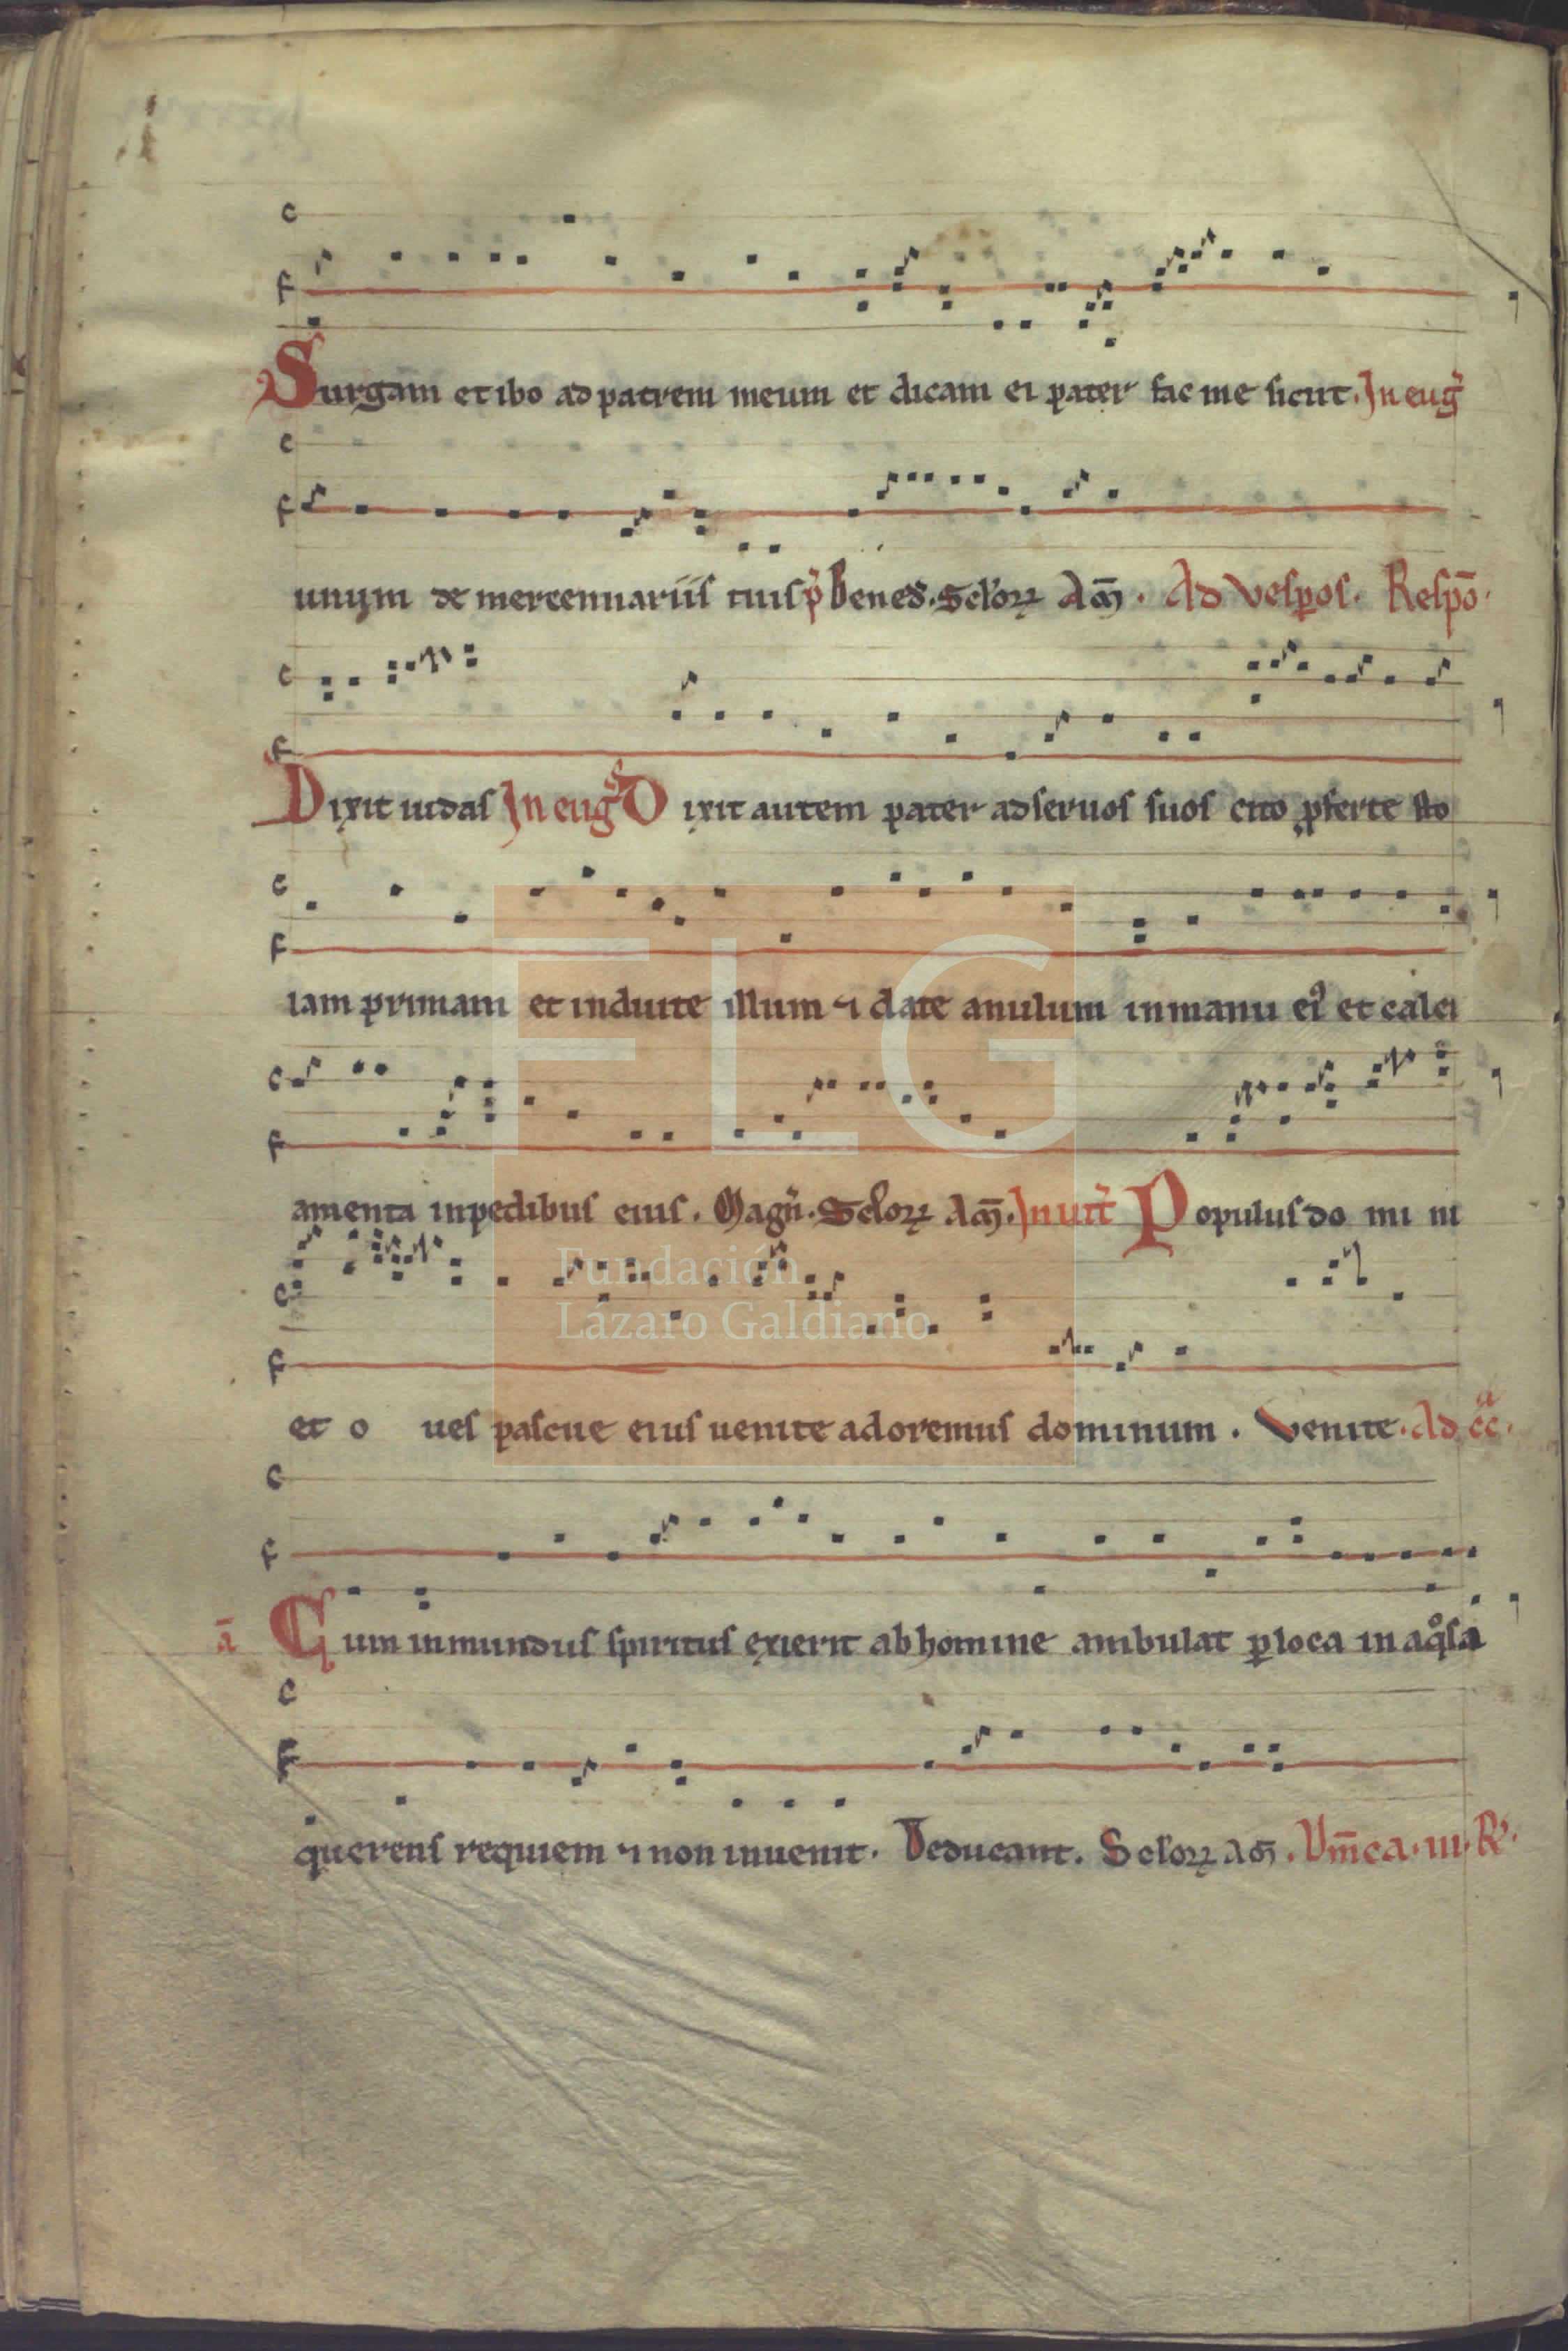 Surgam et ibo ad patrem meum et dicam ei pater fac me sicut. In eug̃
unum de mercennariis tuis p̃ Bened. Sc̃lorꝝ Am̃. Ad vesp̲os. Respõ.
Dixit iudas In eug̃ Dixit autem pater ad seruos suos cito ꝓferte sto
lam primam et induite illum ⁊ date anulum in manu ei⁹ et calci
amenta in pedibus eius. Magñ. Sc̃lorꝝ Am̃. Inuit̃ Populus do mi ni
et o ues pascue eius uenite adoremus dominum. Venite. Ad
ã Cum inmundus spiritus exierit ab homine ambulat ꝑ loca in aq̊sa
querens requiem ⁊ non inuenit. Deducant. Sc̃lorꝝ Am̃. Dm̃ca. iii. R̃.
FLG
Fundación
Lázaro Galdiano